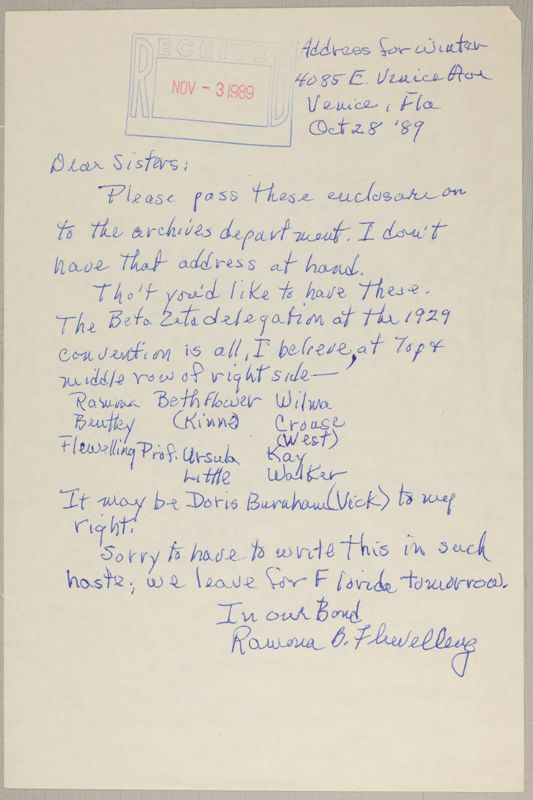 RECEIVED
NOV - 3 1989
Address for winter
4085 E. Venice Ave
Venice, Fla
Oct 28 '89
Dear Sisters:
Please pass these enclosure on
to the archives department. I don't
have that address at hand.
Tho't you'd like to have these.
The Beta Zeta delegation at the 1929
convention is all, I believe, at top &
middle row of right side—
Ramona Beth Flower Wilma
Bentley (Kinne) Crouse
(West)
Flewelling Prof. Ursula Kay
Little Walker
It may be Doris Burnham (Vick) to my
right.
Sorry to have to write this in such
haste; we leave for Florida tomorrow.
In our Bond
Ramona B. Flewelling